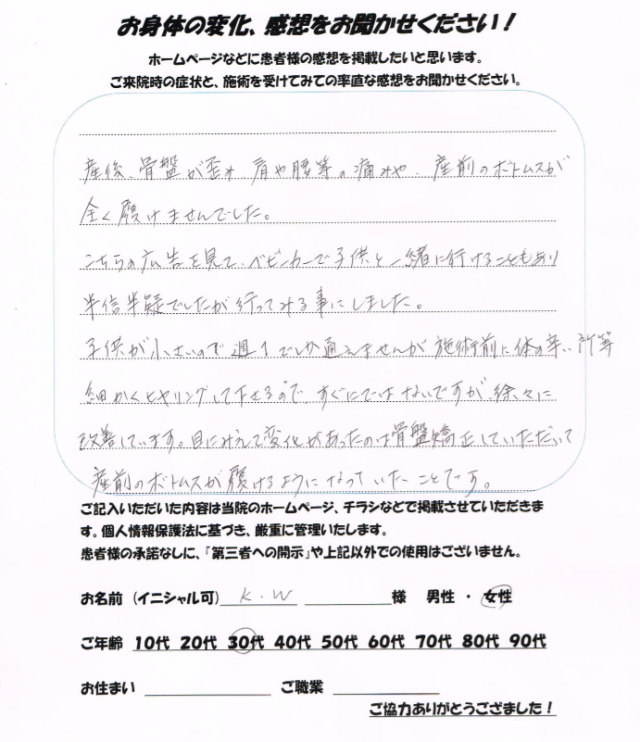 お身体の変化、感想をお聞かせください！
ホームページなどに患者様の感想を掲載したいと思います。
ご来院時の症状と、施術を受けてみての率直な感想をお聞かせください。
産後、骨盤が歪み 肩や腰等の痛みや、産前のボトムスが
全く履けませんでした。
こちらの広告を見て、ベビーカーで子供と一緒に行けることもあり
半信半疑でしたが行ってみる事にしました。
子供が小さいので週1でしか通えませんが施術前に体の辛い所等
細かくヒヤリングして下さるので、すぐにではないですが、徐々に
改善しています。目にみえて変化があったのは骨盤矯正していただいて
産前のボトムスが履けるようになっていたことです。
ご記入いただいた内容は当院のホームページ、チラシなどで掲載させていただきま
す。個人情報保護法に基づき、厳重に管理いたします。
患者様の承諾なしに、「第三者への開示」や上記以外での使用はございません。
お名前（イニシャル可） K.W 様 男性 ・ 女性
ご年齢 10代 20代 30代 40代 50代 60代 70代 80代 90代
お住まい ご職業
ご協力ありがとうござまました！